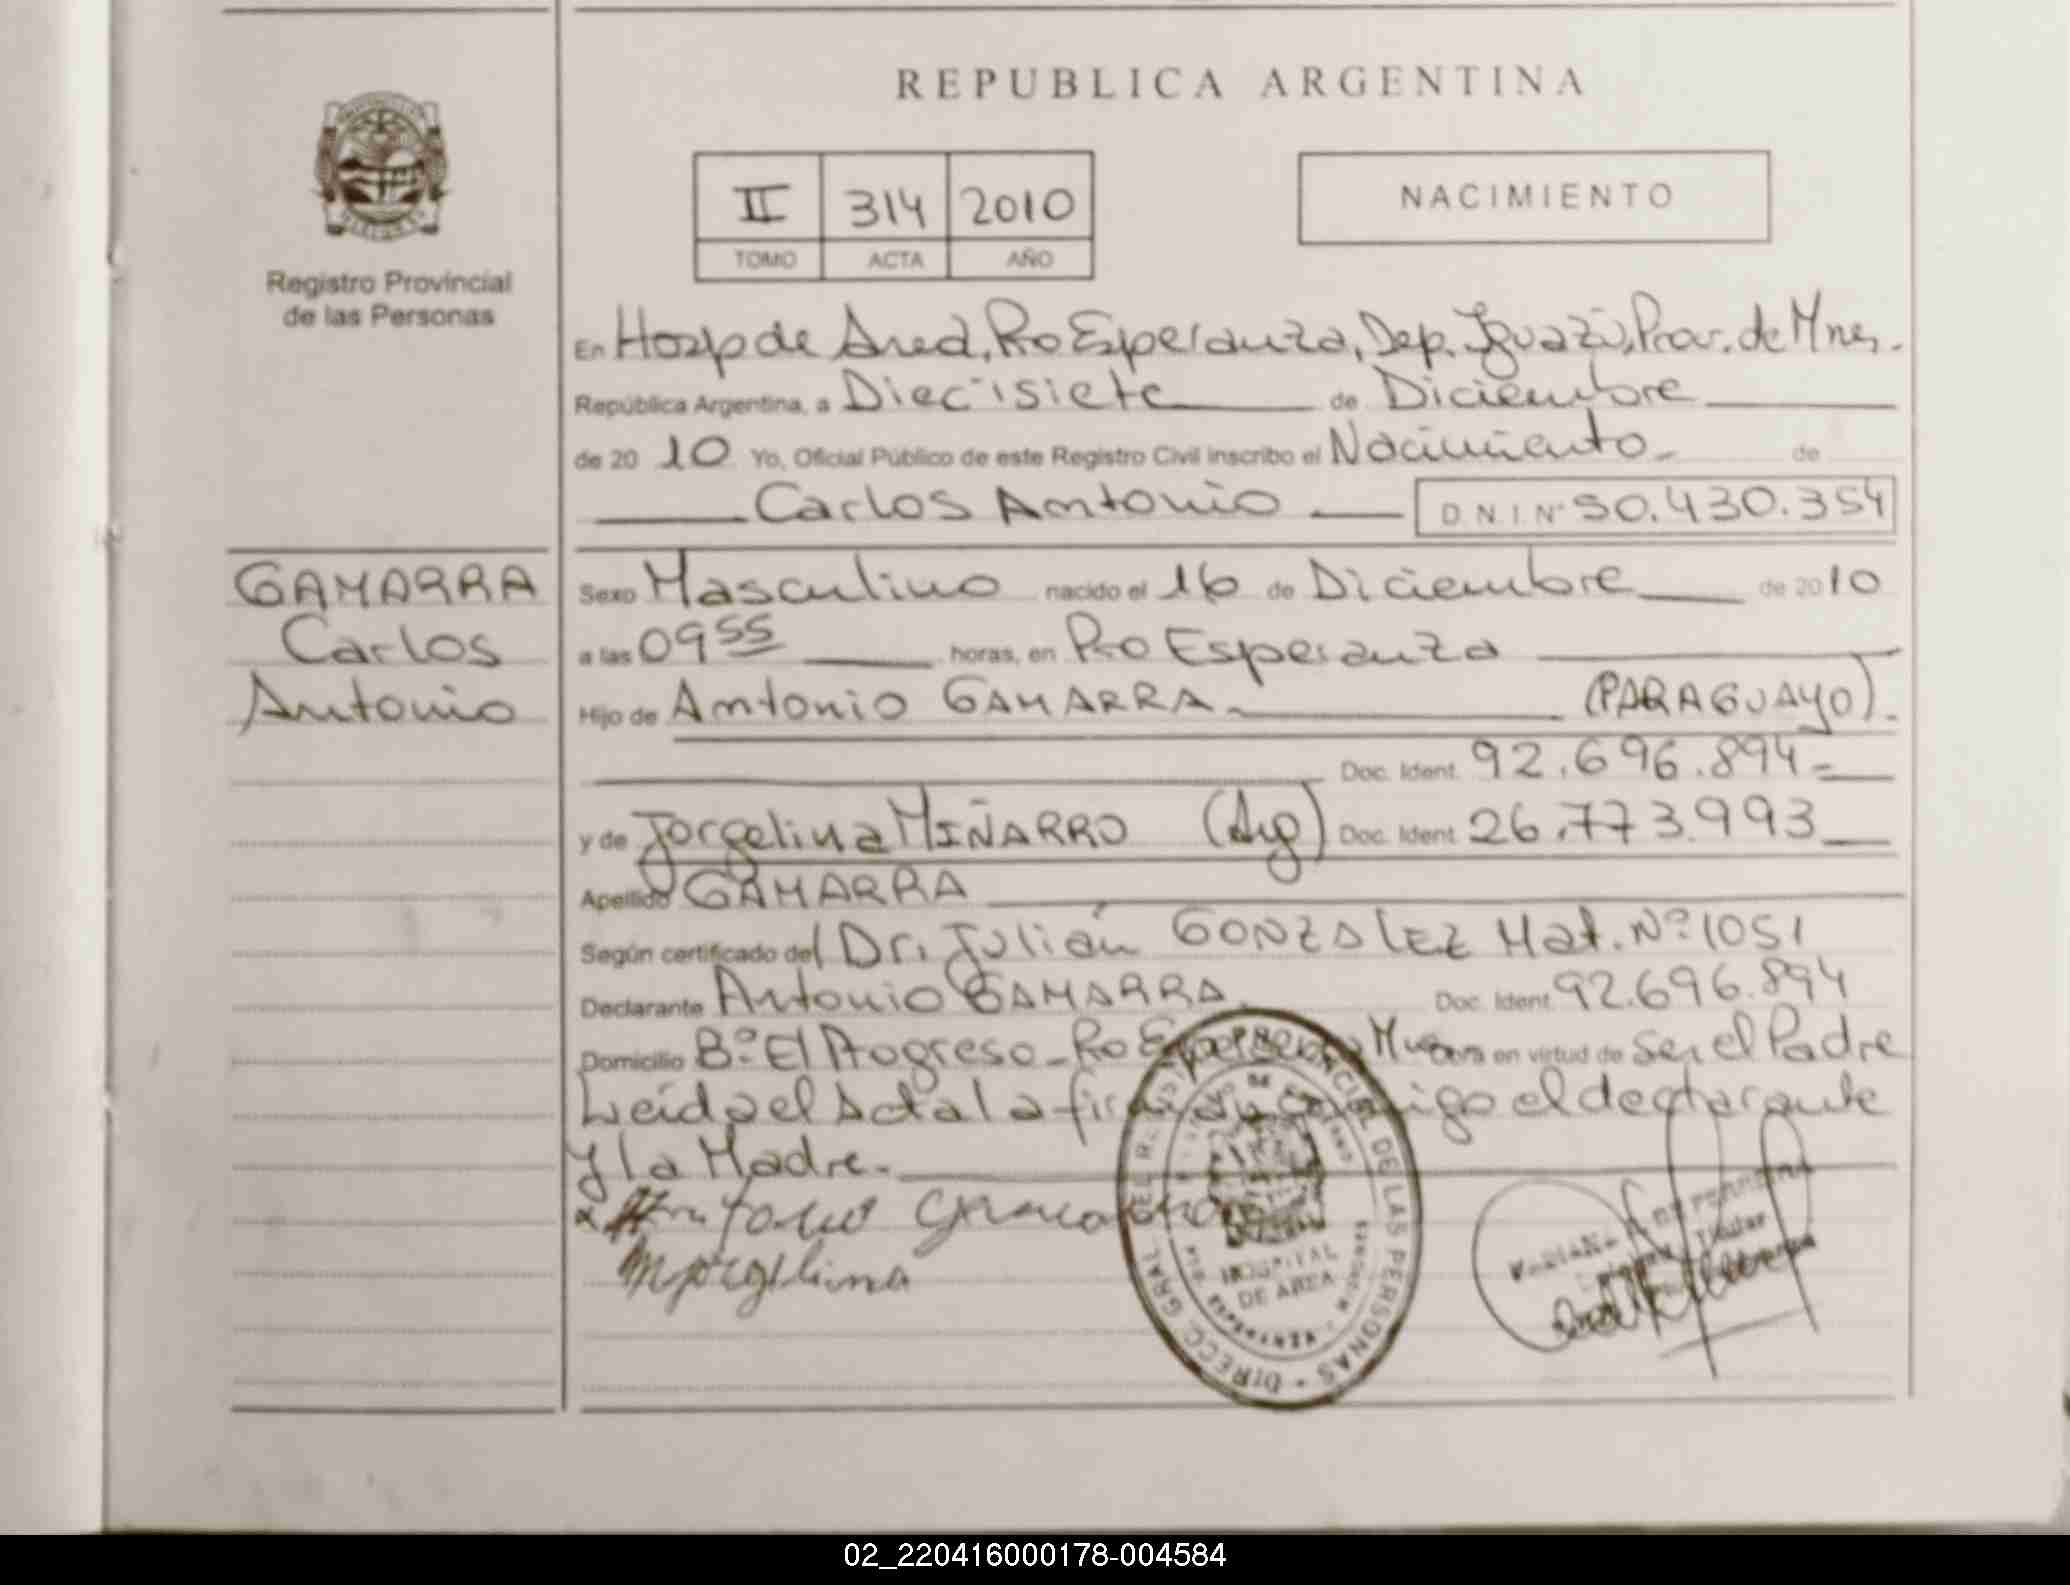 REPUBLICA ARGENTINA
II 314 2010
TOMO ACTA AÑO
NACIMIENTO
Registro Provincial
de las Personas
En Hosp de Area, Pto Esperanza, Dep. Iguazú, Prov. de Mnes.
República Argentina, a Diecisiete de Diciembre
de 20 10 Yo, Oficial Público de este Registro Civil inscribo el Nacimiento de
Carlos Antonio D.N.I. Nº 50.430.354
GAMARRA
Carlos
Antonio
Sexo Masculino nacido el 16 de Diciembre de 2010
a las 09 55 horas, en Pto Esperanza
Hijo de Antonio GAMARRA (PARAGUAYO).
Doc. Ident. 92.696.894
y de Jorgelina MIÑARRO (Arg) Doc. Ident. 26.773.993
Apellido GAMARRA
Según certificado del Dr. Julián GONZALEZ Mat. Nº 1051
Declarante Antonio GAMARRA Doc. Ident. 92.696.894
Domicilio Bº El Progreso - Pto Esperanza Mnes Obra en virtud de ser el Padre
Leída el Acta la firman conmigo el declarante
y la Madre.
Antonio Gamarra
Mjorgelina
DIRECC. GRAL. DEL REGISTRO PROVINCIAL DE LAS PERSONAS
HOSPITAL
DE AREA
Titular
02_220416000178-004584